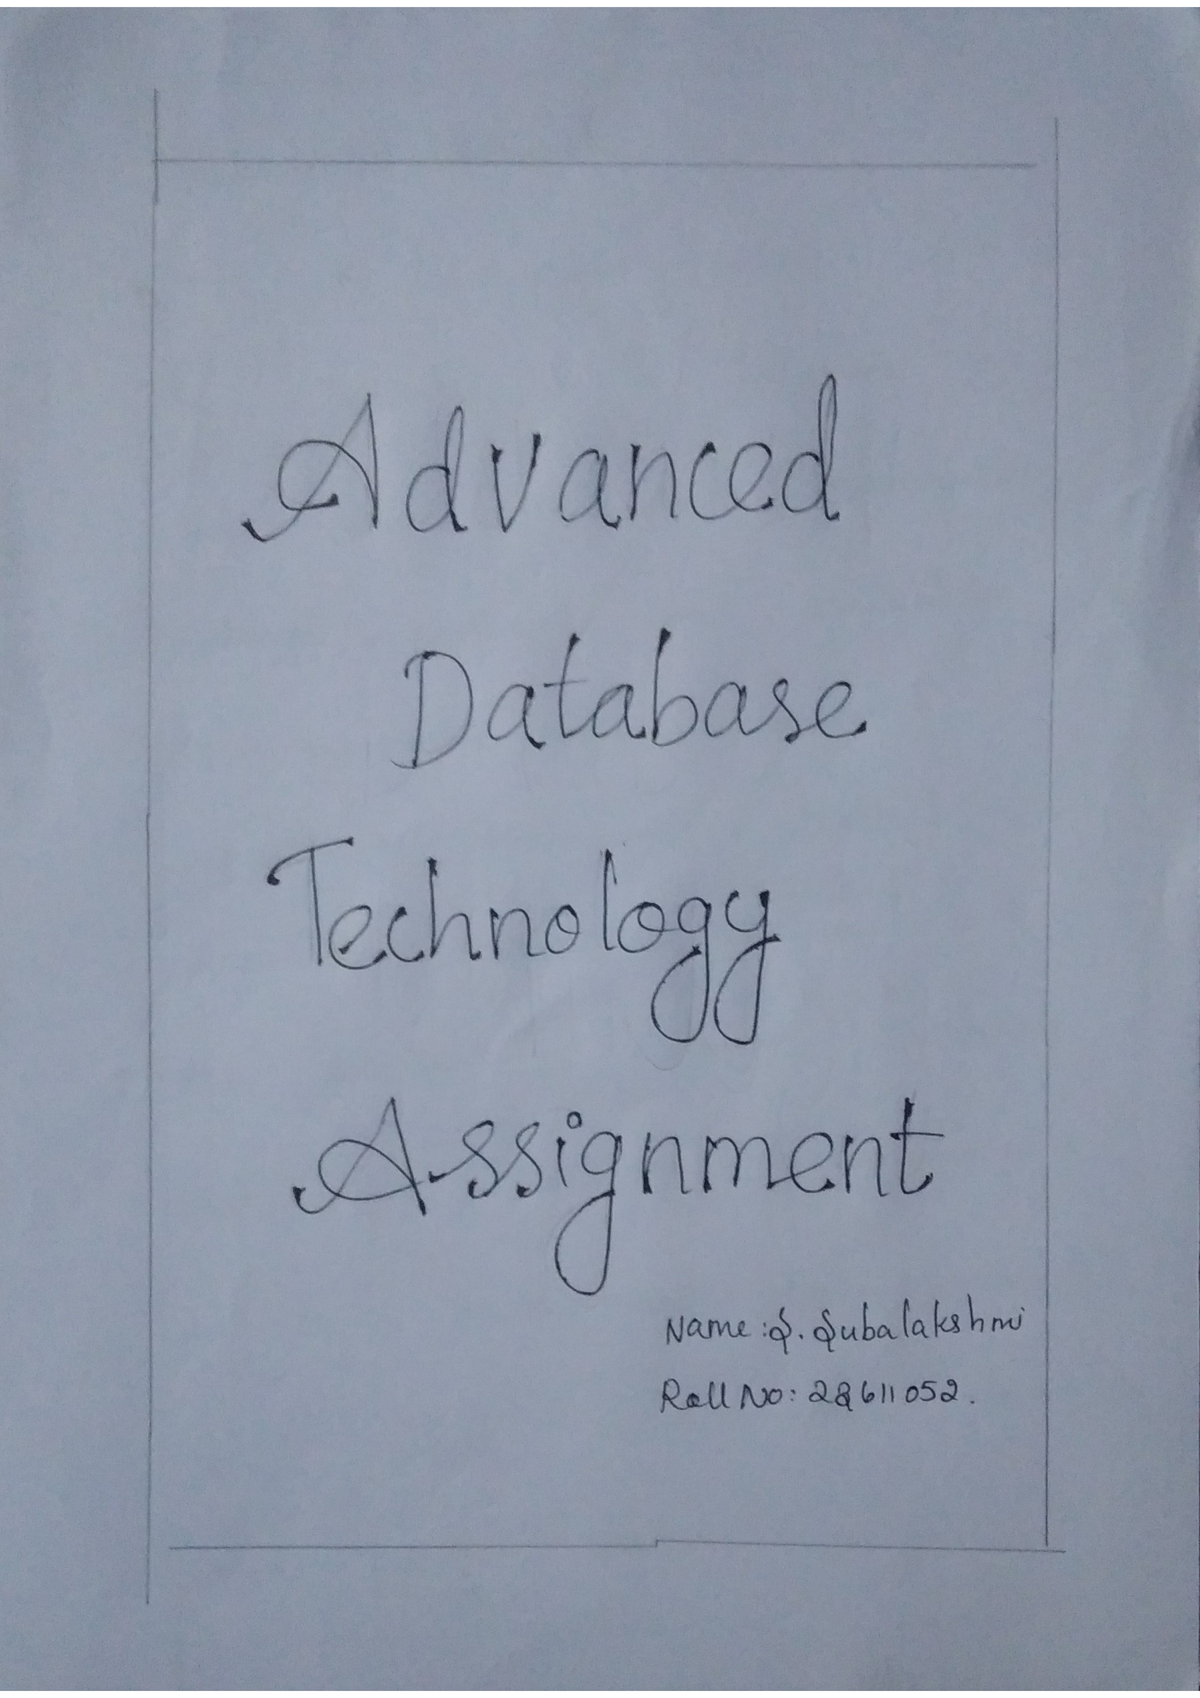 Advanced
Database
Technology
Assignment
Name : S. Subalakshmi
Roll No: